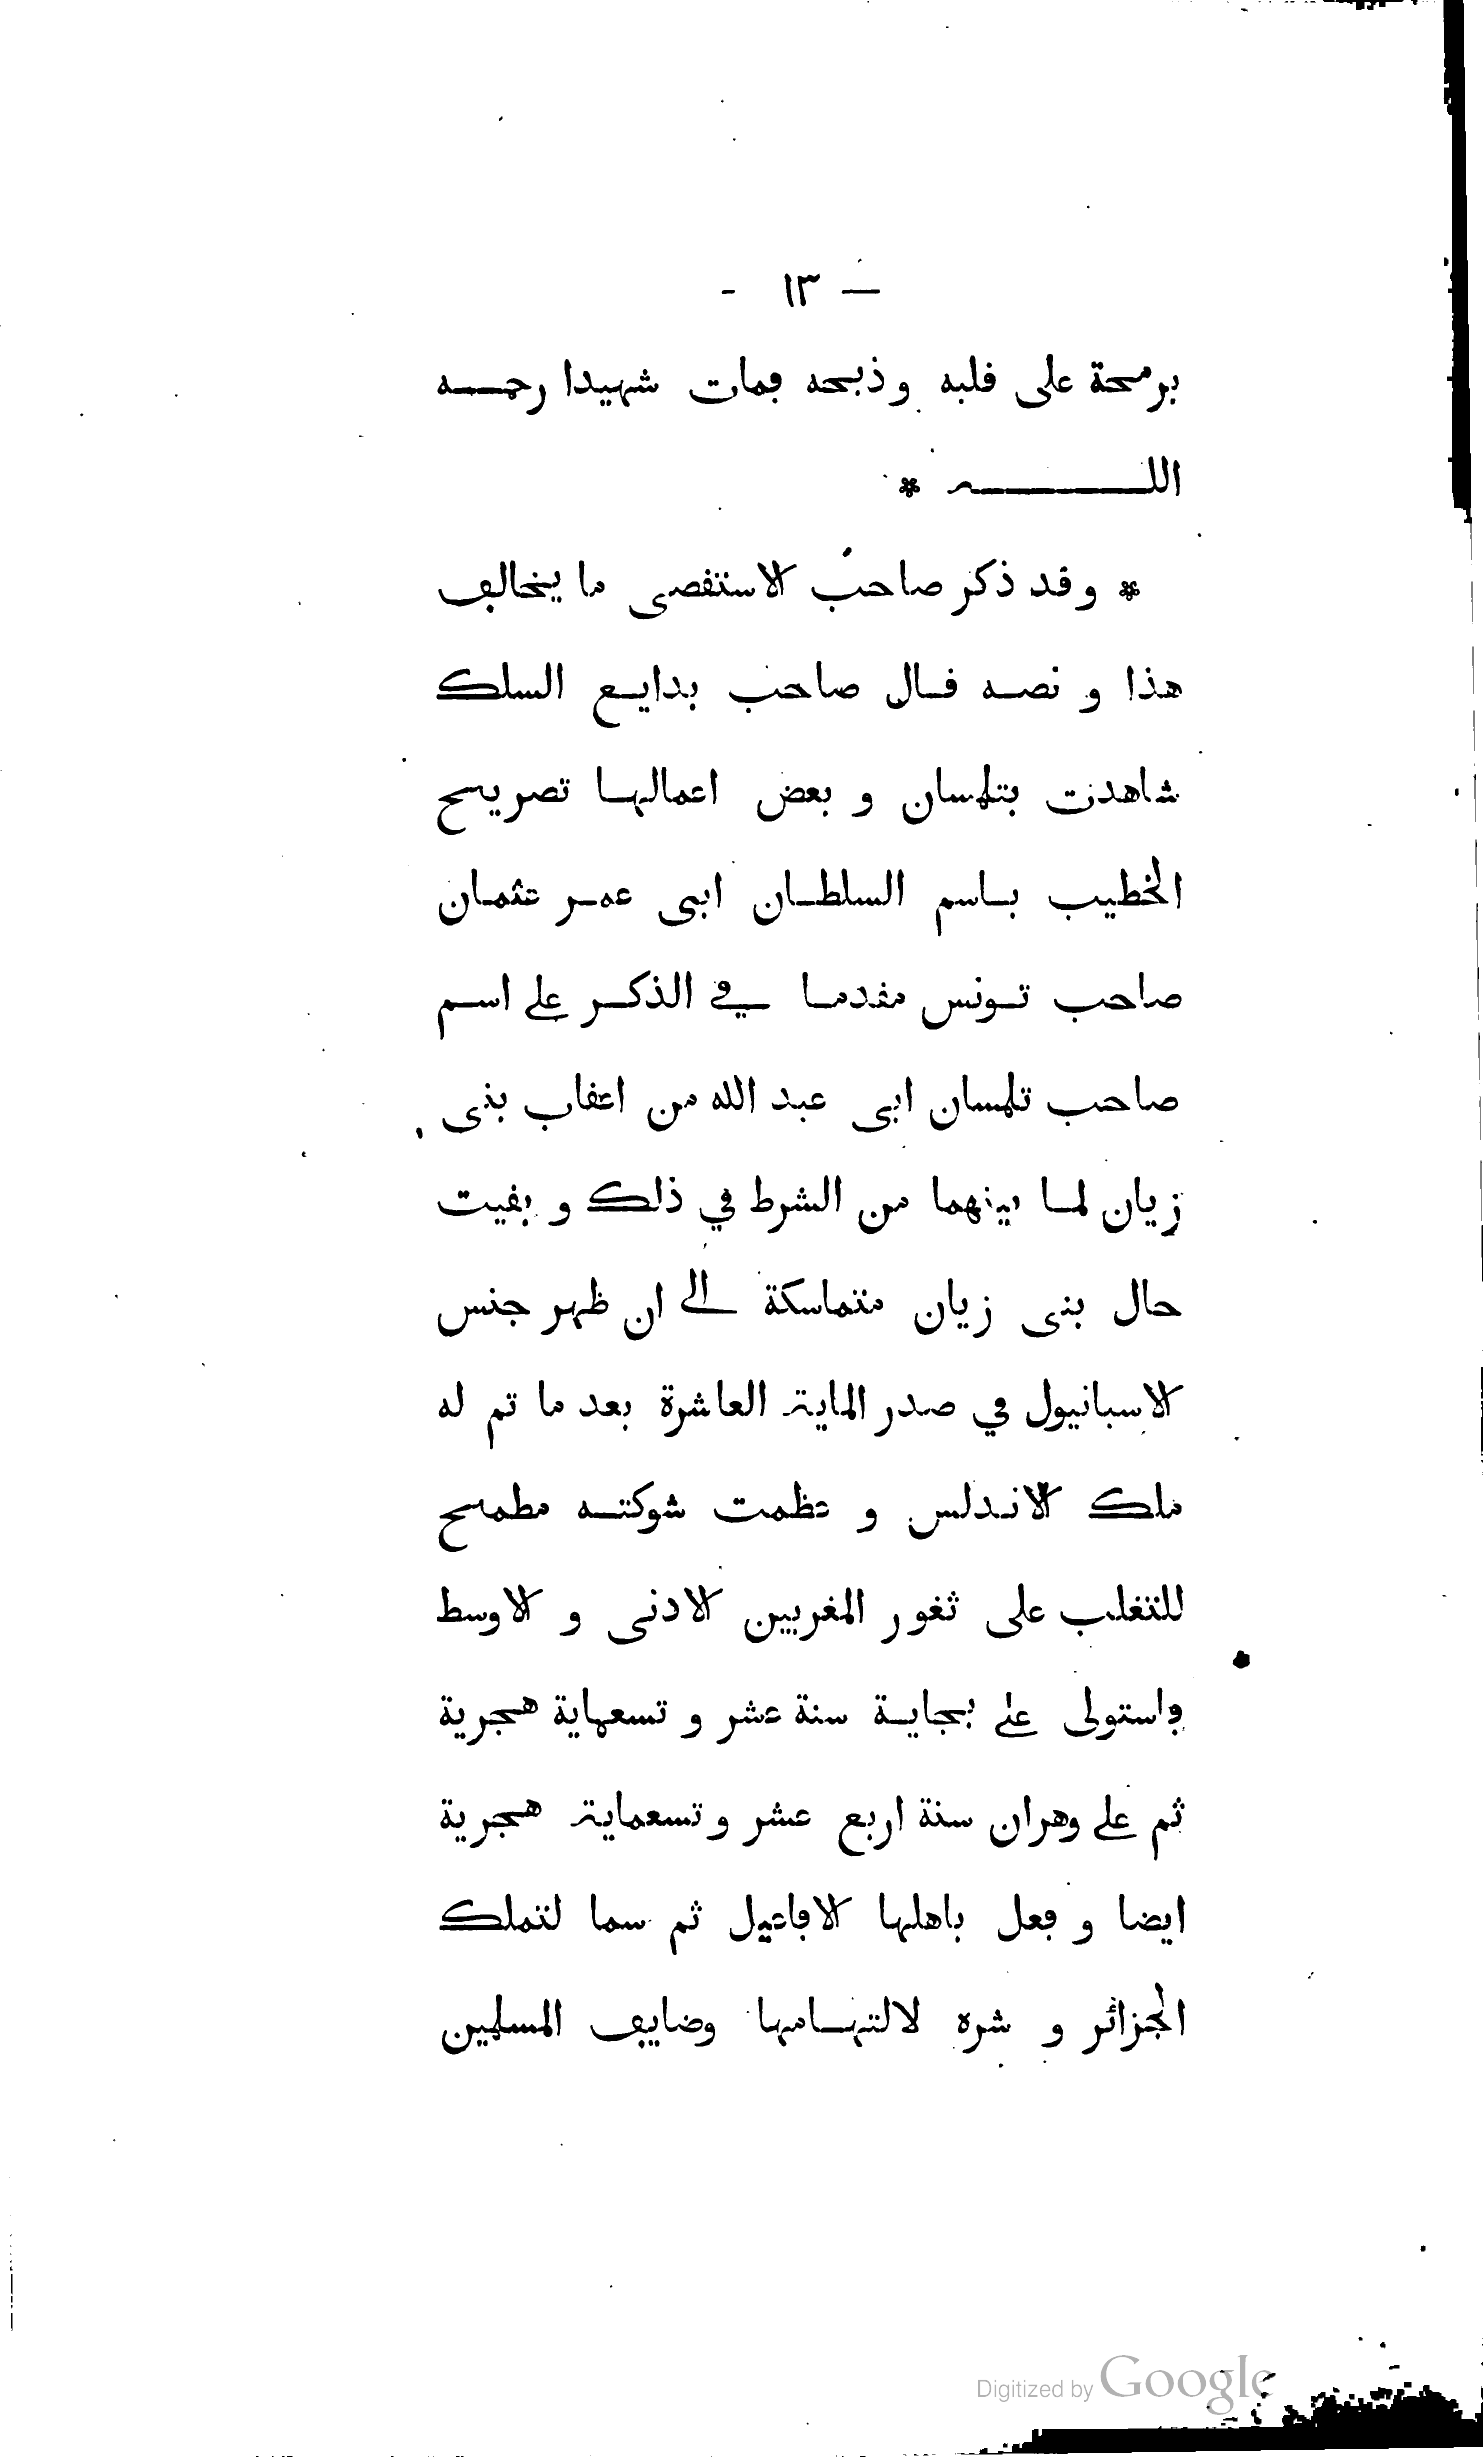 — ١٣ -
برمحة على قلبه وذبحه فمات شهيدا رحمه
الله *
* وقد ذكر صاحب الاستقصى ما يخالف
هذا و نصه قال صاحب بدايع السلك
شاهدت بتلمسان و بعض اعمالها تصريح
الخطيب باسم السلطان ابى عمر عثمان
صاحب تونس مقدما في الذكر على اسم
صاحب تلمسان ابى عبد الله من اعقاب بنى
زيان لما بينهما من الشرط في ذلك و بقيت
حال بنى زيان متماسكة الى ان ظهر جنس
الاسبانيول في صدر الماية العاشرة بعد ما تم له
ملك الاندلس و عظمت شوكته مطمح
للتغلب على ثغور المغربين الادنى و الاوسط
فاستولى على بجاية سنة عشر و تسعماية هجرية
ثم على وهران سنة اربع عشر و تسعماية هجرية
ايضا و فعل باهلها الافاعيل ثم سما لتملك
الجزائر و شره لالتهامها وضايف المسلمين
Digitized by Google